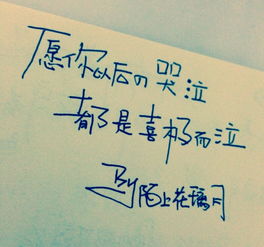 愿你以后の哭泣
都是喜极而泣
By 陌上花璃月